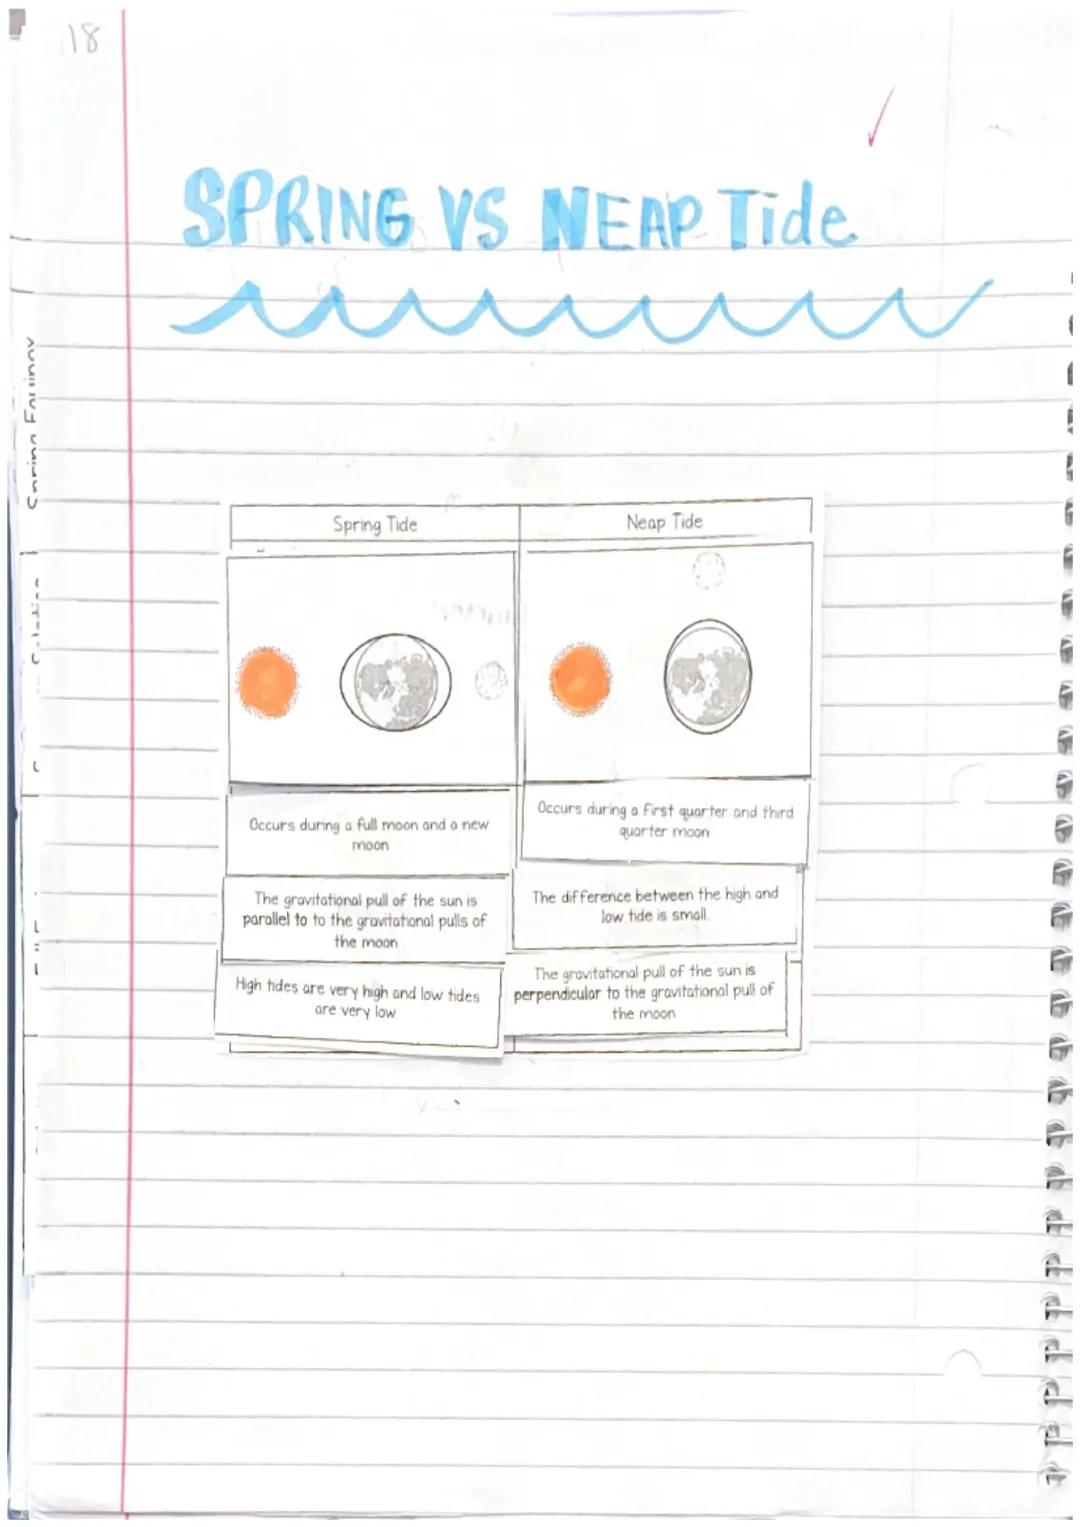 18
SPRING VS NEAP Tide
Spring Tide
Neap Tide
Occurs during a full moon and a new
moon
The gravitational pull of the sun is
parallel to to the gravitational pulls of
the moon
High tides are very high and low tides
are very low
Occurs during a first quarter and third
quarter moon
The difference between the high and
low tide is small.
The gravitational pull of the sun is
perpendicular to the gravitational pull of
the moon
Spring Equinox